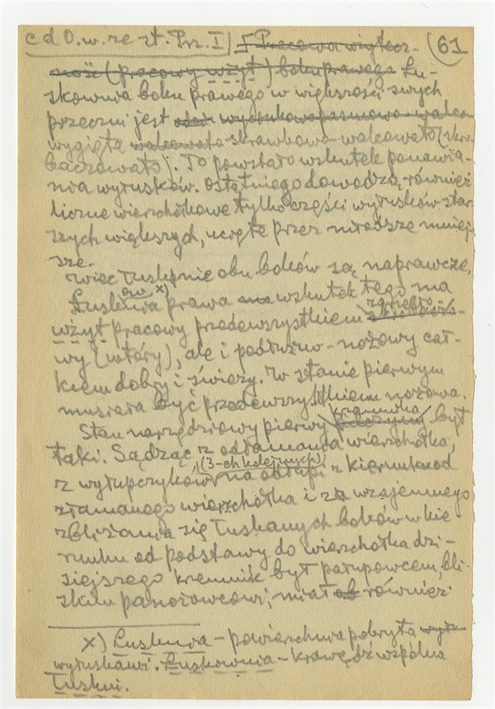 c d O. w. re zt. Prz. I] [Pracowa wytwór- (61
ność (pracowy wżyt) boku prawego Łu-
skownia boku prawego w większości swych
przeczni jest
wygięta walcowato skrawkowo-walcowato (skro-
baczowato). To powstało wskutek ponawia-
nia wyłusków. Ostatniego dowodzą również
liczne wierzchołkowe tylko części wyłusków star-
szych większych, ucięte przez młodsze mniej-
sze.
Więc łuskownie obu boków są naprawcze.
Łusknia ów x) prawa wskutek tego ma
wżyt pracowy przedewszystkiem zgrzebło-
wy (wtóry), ale i podłużno-nożowy cał-
kiem dobry i świeży. W stanie pierwszym
musiała być przedewszystkiem nożowa.
Stan narzędziowy pierwszy krzemnika był
taki. Sądząc z odłamania wierzchołka,
z wyłupczyków (3-ch kolejnych) na odłupi z kierunku od
złamanego wierzchołka i z wzajemnego
zbliżania się łuskanych boków w kie-
runku od podstawy do wierzchołka dzi-
siejszego krzemnik był parupowcem, bli-
skim panożowcowi; miał ob również
x) Łusknia - powierzchnia pokryta wyłu
wyłuskami. Łuskownia - krawędź wspólna
łuskni.